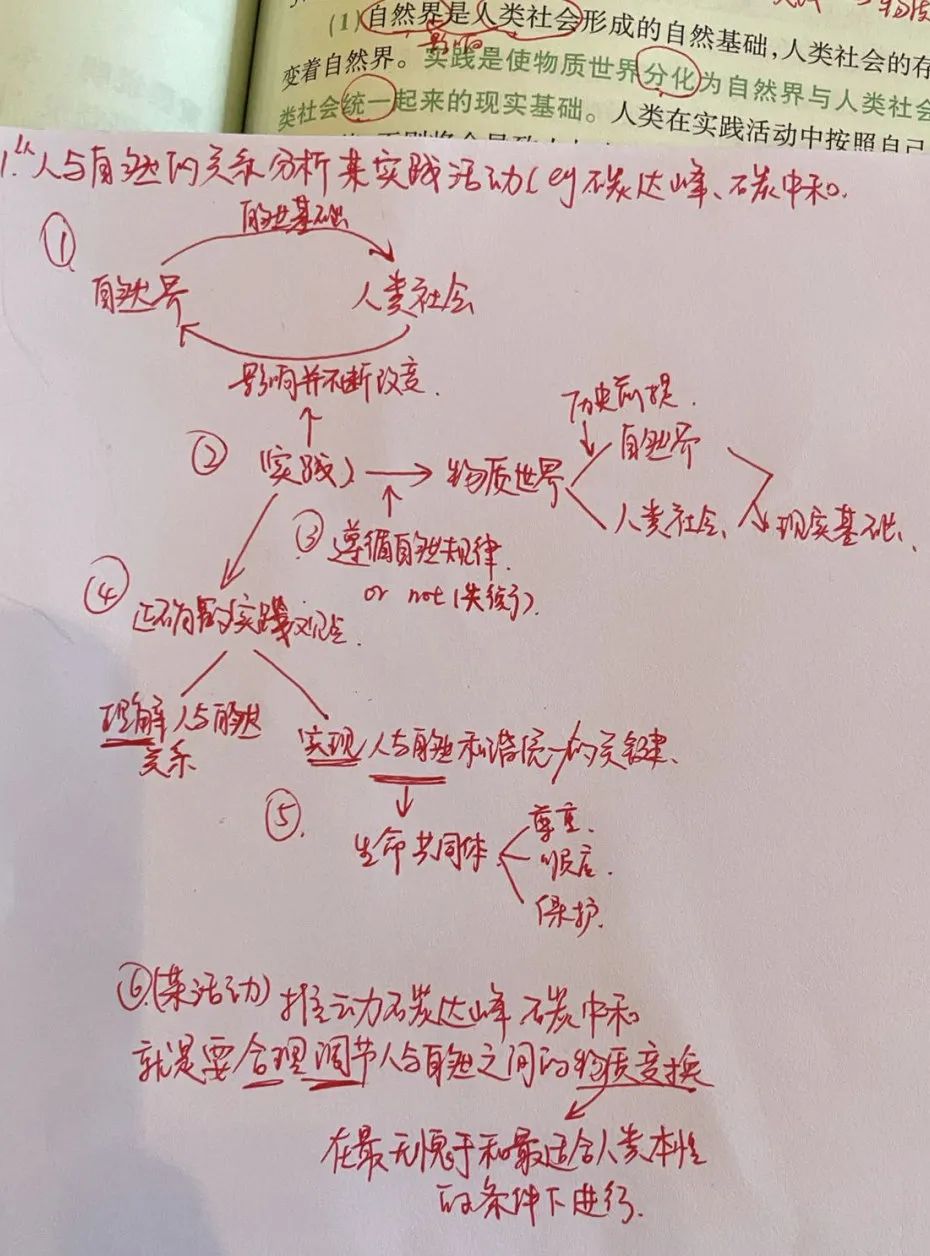 (1)自然界是人类社会形成的自然基础,人类社会的存
影响
变着自然界。实践是使物质世界分化为自然界与人类社会
类社会统一起来的现实基础。人类在实践活动中按照自己
1.从人与自然的关系分析某实践活动(eg碳达峰、碳中和。
①
自然基础
自然界 人类社会
影响并不断改变.
历史前提.
② (实践) 物质世界 自然界
人类社会. 现实基础.
③ 遵循自然规律.
or not(失衡).
④
正确的实践观点.
理解人与自然
关系
实现人与自然和谐统一的关键.
⑤
生命共同体 尊重.
顺应.
保护.
⑥(某活动) 推动碳达峰.碳中和
就是要合理调节人与自然之间的物质变换
在最无愧于和最适合人类本性
的条件下进行.